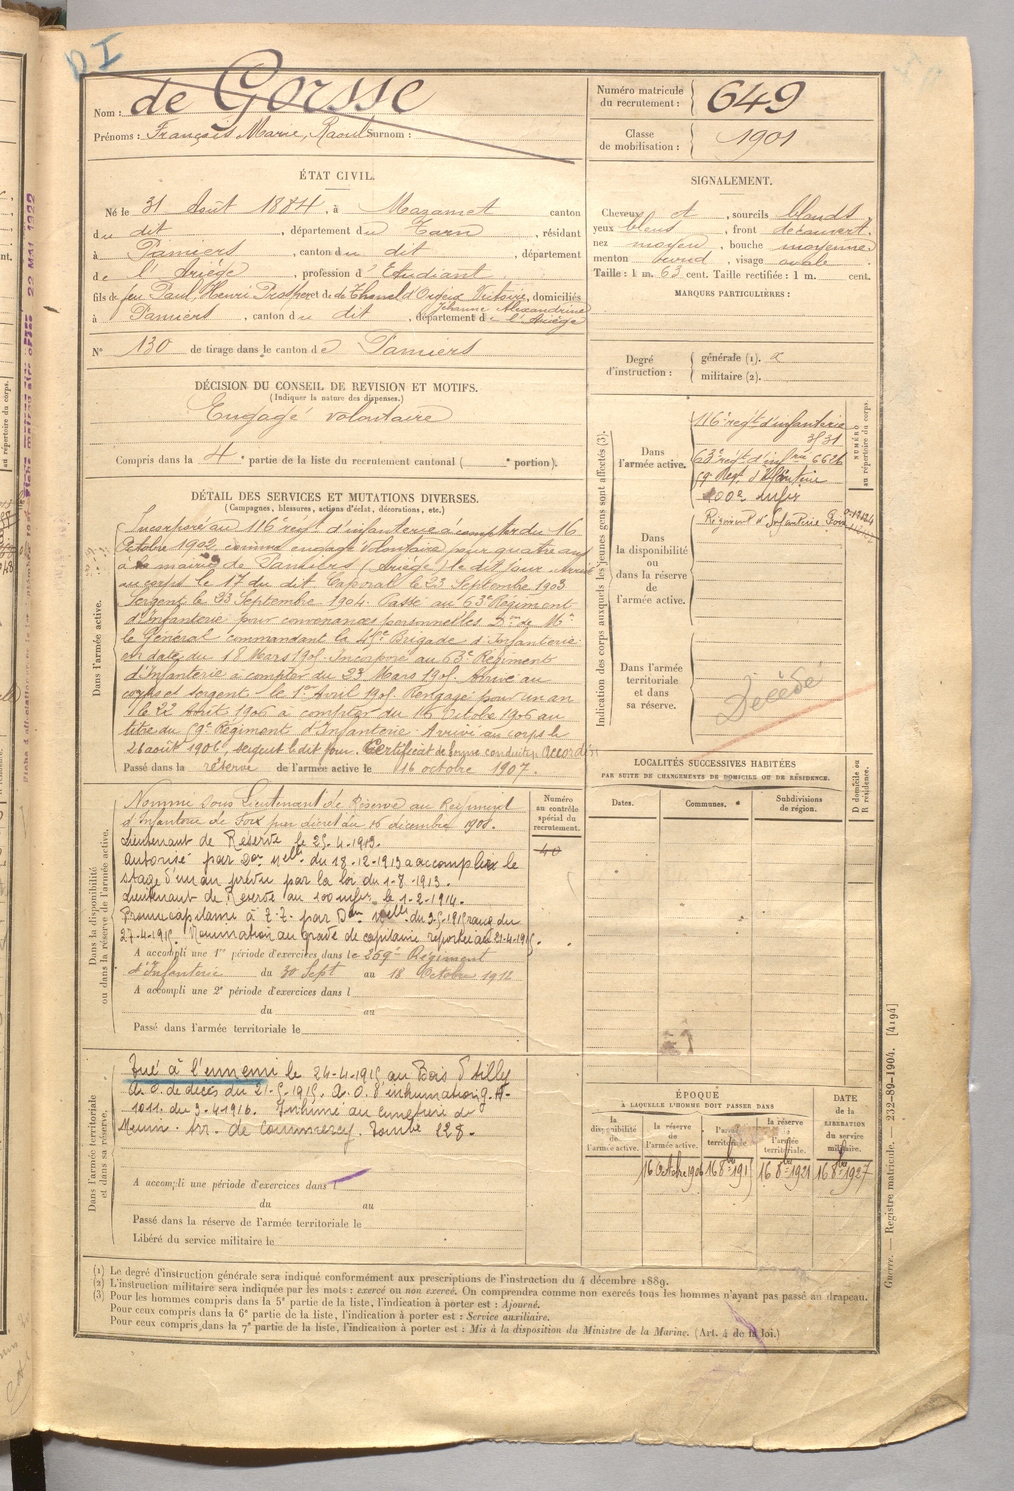 DI
Nom : de Gorsse
Prénoms : François Marie, Raoul Surnom :
ÉTAT CIVIL.
Né le 31 Août 1884, à Mazamet canton
du dit, département du Tarn, résidant
à Pamiers, canton du dit, département
de l'Ariège, profession d'Etudiant
fils de feu Paul, Henri et de Victoire, domiciliés
Jehanne Alexandrine
à Pamiers, canton du dit, département de l'Ariège
N° 130 de tirage dans le canton de Pamiers
DÉCISION DU CONSEIL DE REVISION ET MOTIFS.
(Indiquer la nature des dispenses.)
Engagé volontaire
Compris dans la 4e partie de la liste du recrutement cantonal ( e portion).
DÉTAIL DES SERVICES ET MUTATIONS DIVERSES.
(Campagnes, blessures, actions d'éclat, décorations, etc.)
Dans l'armée active.
Incorporé au 116e régt d'infanterie à compter du 16
Octobre 1902 comme engagé volontaire pour quatre ans
à la mairie de Pamiers (Ariège) le dit jour. Arrivé
au corps le 17 du dit. Caporal le 23 Septembre 1903
Sergent le 23 Septembre 1904. Passé au 63e Régiment
d'Infanterie pour convenances personnelles Don de Mr
le Général commandant la Brigade d'Infanterie
en date du 18 Mars 1905. Incorporé au 63e Régiment
d'Infanterie à compter du 23 Mars 1905. Arrivé au
corps et sergent le 1er Avril 1905. Rengagé pour un an
le 22 Août 1906 à compter du 16 Octobre 1906 au
titre du 9e Régiment d'Infanterie. Arrivé au corps le
26 août 1906, sergent le dit jour. Certificat de bonne conduite Accordé
Passé dans la réserve de l'armée active le 16 octobre 1907.
Dans la disponibilité ou dans la réserve de l'armée active.
Nommé Sous Lieutenant de Réserve au Régiment
d'Infanterie de Foix par décret du 16 décembre 1908.
Lieutenant de Réserve le 25-4-1913.
autorisé par Don Melle du 18-12-1913 à accomplir le
stage d'un an prévu par la loi du 1-8-1913.
Lieutenant de Réserve au 100 inf le 1-2-1914.
Promu capitaine à T.T. par Don Melle du 3-5-1915 rang du
27-4-1915. Nomination au grade de capitaine reportée au 21-4-1915.
A accompli une 1re période d'exercices dans le 259e Régiment
d'Infanterie du 30 Sept au 18 Octobre 1912
A accompli une 2e période d'exercices dans l
du au
Passé dans l'armée territoriale le
Dans l'armée territoriale et dans sa réserve.
Tué à l'ennemi le 24-4-1915 au Bois d'Ailly
A.O. de décès du 21-5-1915. A.O. d'inhumation
1011. du 3-4-1916. Inhumé au cimetière de
Arr. de Commercy. Tombe 228.
A accompli une période d'exercices dans l
du au
Passé dans la réserve de l'armée territoriale le
Libéré du service militaire le
Numéro matricule du recrutement : 649
Classe de mobilisation : 1901
SIGNALEMENT.
Cheveux et, sourcils blonds
yeux bleus, front découvert,
nez moyen, bouche moyenne,
menton rond, visage ovale.
Taille : 1 m. 63 cent. Taille rectifiée : 1 m. cent.
MARQUES PARTICULIÈRES :
Degré d'instruction :
générale (1).
militaire (2).
Indication des corps auxquels les jeunes gens sont affectés (3).
NUMÉRO au répertoire du corps.
Dans l'armée active.
116e régt d'infanterie
3531
63e régt d'infrie 6626
9e Régt d'Infanterie
100e Infie
Dans la disponibilité ou dans la réserve de l'armée active.
Régiment d'Infanterie Foix
Dans l'armée territoriale et dans sa réserve.
Décédé
LOCALITÉS SUCCESSIVES HABITÉES
PAR SUITE DE CHANGEMENTS DE DOMICILE OU DE RÉSIDENCE.
D domicile ou R résidence.
Numéro au contrôle spécial du recrutement.
40
Dates. Communes. Subdivisions de région.
ÉPOQUE
À LAQUELLE L'HOMME DOIT PASSER DANS
DATE de la LIBÉRATION du service militaire.
la disponibilité de l'armée active.
la réserve de l'armée active.
l'armée territoriale.
la réserve de l'armée territoriale.
16 Octobre 1906 16 8bre 191 16 8bre 1921 16 8bre 1927
(1) Le degré d'instruction générale sera indiqué conformément aux prescriptions de l'instruction du 4 décembre 1889.
(2) L'instruction militaire sera indiquée par les mots : exercé ou non exercé. On comprendra comme non exercés tous les hommes n'ayant pas passé au drapeau.
(3) Pour les hommes compris dans la 5e partie de la liste, l'indication à porter est : Ajourné.
Pour ceux compris dans la 6e partie de la liste, l'indication à porter est : Service auxiliaire.
Pour ceux compris dans la 7e partie de la liste, l'indication à porter est : Mis à la disposition du Ministre de la Marine. (Art. 4 de la loi.)
Guerre. — Registre matricule. — 232-89-1904. [4194]